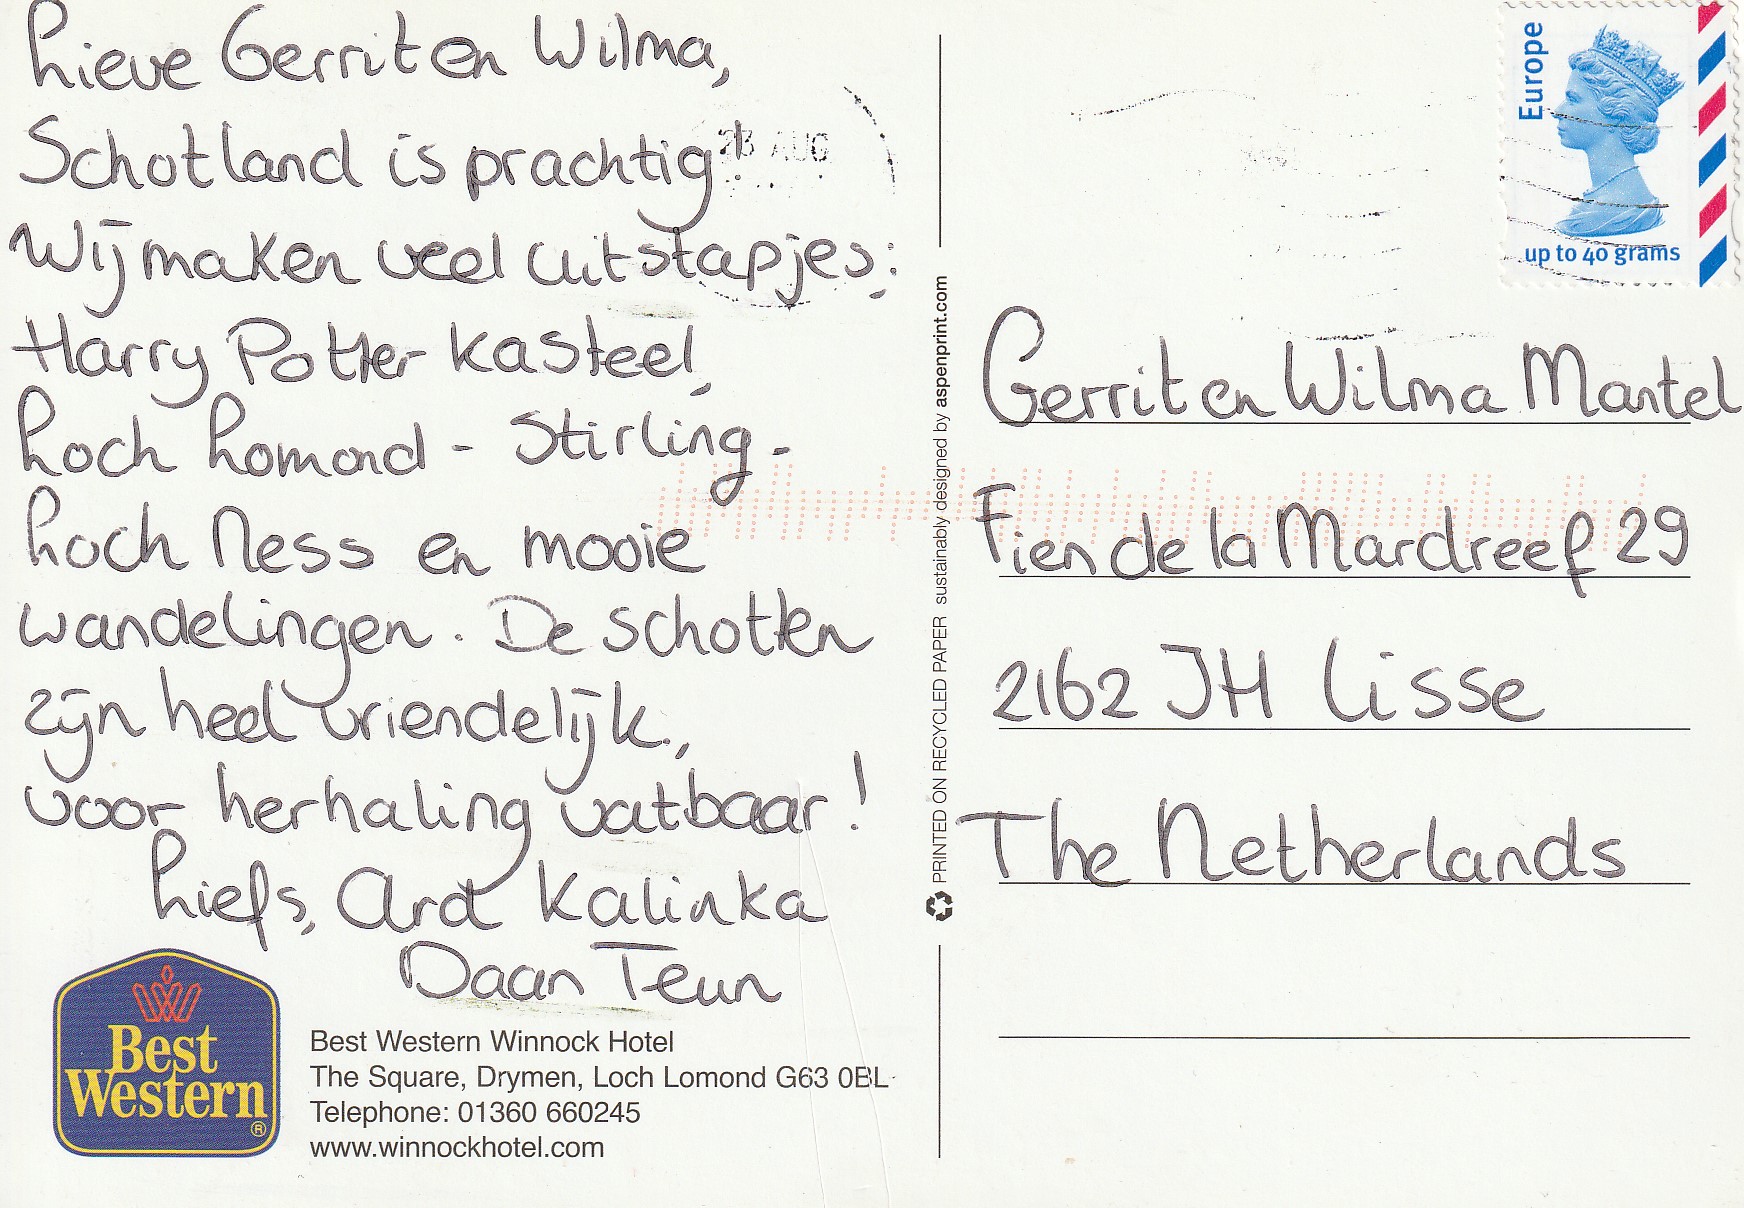 Lieve Gerrit en Wilma,
Schotland is prachtig!
Wij maken veel uitstapjes:
Harry Potter kasteel,
Loch Lomond - Stirling -
Loch Ness en mooie
wandelingen. De schotten
zijn heel vriendelijk,
voor herhaling vatbaar!
Liefs, Ard Kalinka
Daan Teun
23 AUG
Best
Western
®
Best Western Winnock Hotel
The Square, Drymen, Loch Lomond G63 0BL
Telephone: 01360 660245
www.winnockhotel.com
PRINTED ON RECYCLED PAPER sustainably designed by aspenprint.com
Europe
up to 40 grams
Gerrit en Wilma Mantel
Fien de la Mardreef 29
2162 JH Lisse
The Netherlands